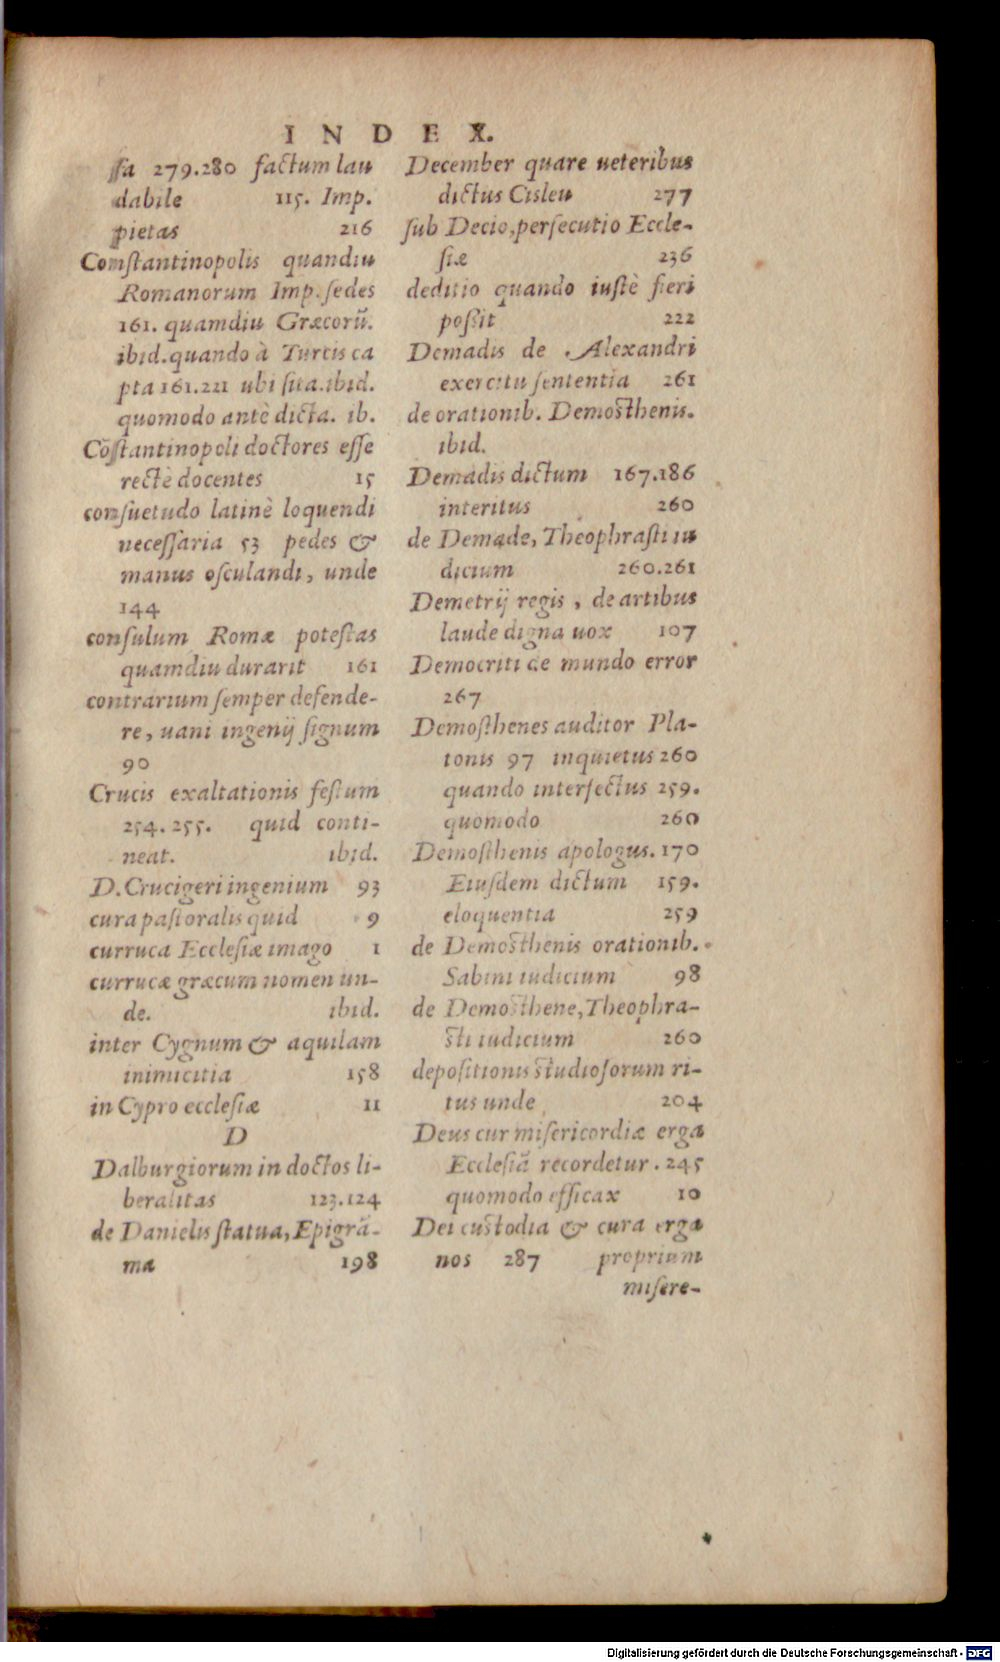 INDEX.
ſſa 279.280 factum lau
dabile 115. Imp.
pietas 216
Comſtantinopolis quandiu
Romanorum Imp. ſedes
161. quamdiu Græcorũ.
ibid. quando à Turcis ca
pta 161.221 ubi ſita. ibid.
quomodo antè dicta. ib.
Cõſtantinopoli doctores eſſe
rectè docentes 15
conſuetudo latinè loquendi
neceſſaria 53 pedes &
manus oſculandi, unde
144
conſulum Romæ poteſtas
quamdiu durarit 161
contrarium ſemper defende-
re, uani ingenij ſignum
90
Crucis exaltationis feſtum
254.255. quid conti-
neat. ibid.
D. Crucigeri ingenium 93
cura paſtoralis quid 9
curruca Eccleſiæ imago 1
currucæ græcum nomen un-
de. ibid.
inter Cygnum & aquilam
inimicitia 158
in Cypro eccleſiæ 11
D
Dalburgiorum in doctos li-
beralitas 123.124
de Danielis ſtatua, Epigrã-
ma 198
December quare ueteribus
dictus Cisleu 277
ſub Decio, perſecutio Eccle-
ſiæ 236
deditio quando iuſtè fieri
poſsit 222
Demadis de Alexandri
exercitu ſententia 261
de orationib. Demoſthenis.
ibid.
Demadis dictum 167.186
interitus 260
de Demade, Theophraſti iu
dicium 260.261
Demetrij regis, de artibus
laude digna uox 107
Democriti de mundo error
267
Demoſthenes auditor Pla-
tonis 97 inquietus 260
quando interfectus 259.
quomodo 260
Demoſthenis apologus. 170
Eiuſdem dictum 159.
eloquentia 259
de Demoſthenis orationib.
Sabini iudicium 98
de Demoſthene, Theophra-
ſti iudicium 260
depoſitionis ſtudioſorum ri-
tus unde 204
Deus cur miſericordiæ erga
Eccleſiã recordetur. 245
quomodo efficax 10
Dei cuſtodia & cura erga
nos 287 proprium
miſere-
Digitalisierung gefördert durch die Deutsche Forschungsgemeinschaft - DFG